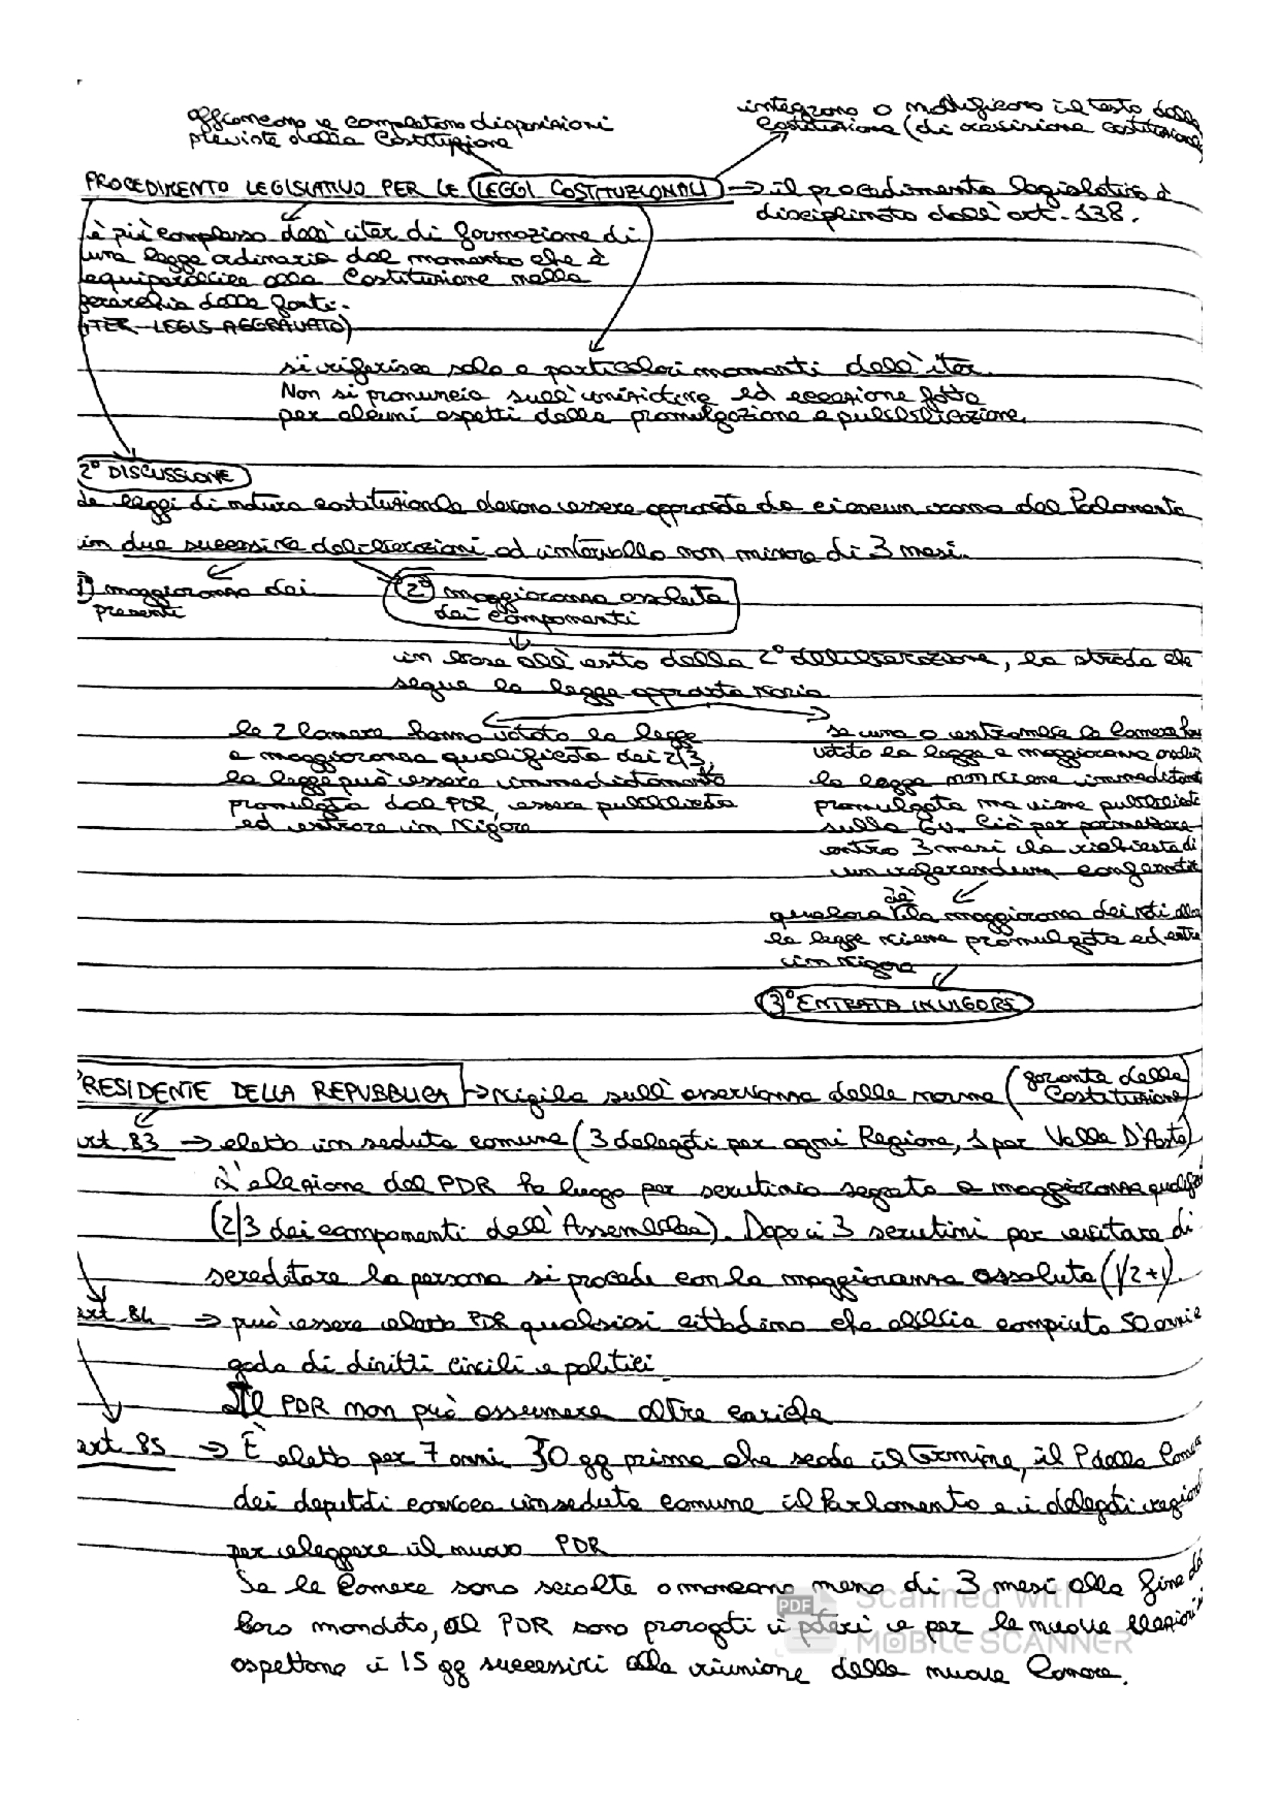 affiancano e completano disposizioni
previste dalla Costituzione
integrano o modificano il testo della
Costituzione (di revisione costituzionale
PROCEDIMENTO LEGISLATIVO PER LE LEGGI COSTITUZIONALI → il procedimento legislativo è
disciplinato dall'art. 138.
è più complesso dell'iter di formazione di
una legge ordinaria dal momento che è
equiparabile alla Costituzione nella
gerarchia delle fonti.
(ITER LEGIS AGGRAVATO)
si riferisce solo a particolari momenti dell'iter.
Non si pronuncia sull'iniziativa ed eccezione fatta
per alcuni aspetti della promulgazione e pubblicazione.
2° DISCUSSIONE
Le leggi di natura costituzionale devono essere approvate da ciascun ramo del Parlamento
in due successive deliberazioni ad intervallo non minore di 3 mesi.
1° maggioranza dei
presenti
2° maggioranza assoluta
dei componenti
in base all'esito della 2° deliberazione, la strada che
segue la legge approvata varia
le 2 Camere hanno votato la legge
a maggioranza qualificata dei 2/3,
la legge può essere immediatamente
promulgata dal PDR, essere pubblicata
ed entrare in vigore
se una o entrambe le Camere han
votato la legge a maggioranza
la legge non viene
promulgata ma viene pubblicata
sulla GU. Ciò per permettere
entro 3 mesi la richiesta di
un referendum
qualora vi sia la maggioranza dei voti
la legge viene promulgata ed
in vigore
3° ENTRATA IN VIGORE
PRESIDENTE DELLA REPUBBLICA → vigila sull'osservanza delle norme (garante della
Costituzione)
art. 83 → eletto in seduta comune (3 delegati per ogni Regione, 1 per Valle D'Aosta)
L'elezione del PDR ha luogo per scrutinio segreto a maggioranza
(2/3 dei componenti dell'Assemblea). Dopo i 3 scrutini per evitare di
screditare la persona si procede con la maggioranza assoluta (1/2+1).
art. 84 → può essere eletto PDR qualsiasi cittadino che abbia compiuto 50 anni e
goda di diritti civili e politici.
Il PDR non può assumere altre cariche
art. 85 → È eletto per 7 anni 30 gg prima che scada il termine, il P della Camera
dei deputati convoca in seduta comune il Parlamento e i delegati
per eleggere il nuovo PDR
Se le Camere sono sciolte o mancano meno di 3 mesi alla fine del
loro mandato, al PDR sono prorogati i poteri e per le nuove elezioni
aspettano i 15 gg successivi alla riunione delle nuove Camere.
PDF Scanned with
MOBILE SCANNER